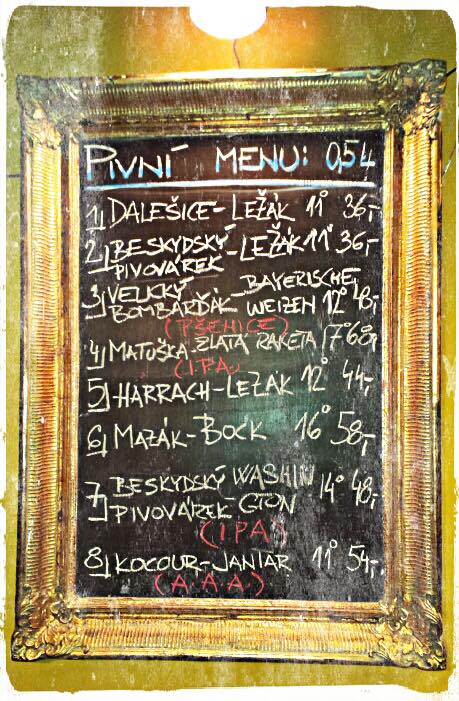 PIVNÍ MENU: 0,54
1, DALEŠICE - LEŽÁK 11° 36,-
2, BESKYDSKÝ PIVOVÁREK - LEŽÁK 11° 36,-
3, VELKÝ BOMBARĎÁK - BAYERISCHE WEIZEN 12° 48,-
(PŠENICE)
4, MATUŠKA - ZLATÁ RAKETA 17° 68,-
(IPA)
5, HARRACH - LEŽÁK 12° 44,-
6, MAZÁK - BOCK 16° 58,-
7, BESKYDSKÝ PIVOVÁREK - WASHINGTON 14° 48,-
(IPA)
8, KOCOUR - JANTAR 11° 54,-
(A.A.A.)